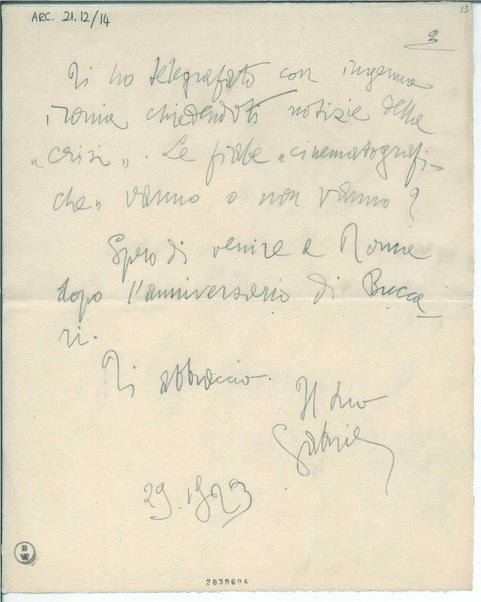 ARC. 21.12/14
13
2
Ti ho telegrafato con ingenua
ironia chiedendoti notizie della
„crisi„. Le fiabe „cinematografi-
che„ vanno o non vanno?
Spero di venire a Roma
dopo l'anniversario di Bucca-
ri.
Ti abbraccio.
Il tuo
Gabriel
29. 1923
B
2839694